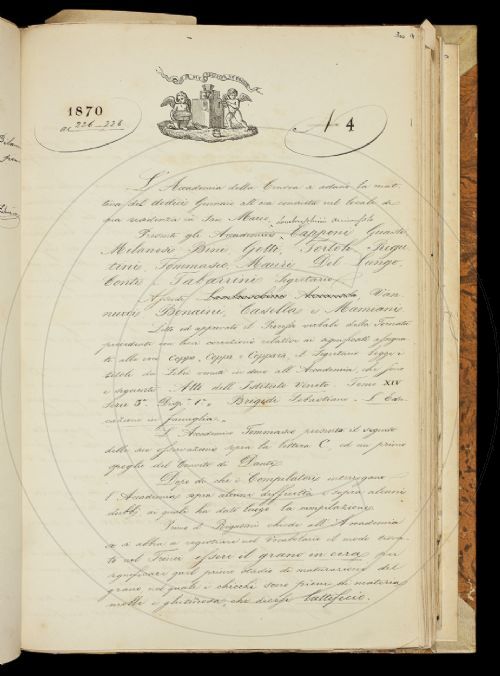 1870
ac 226-228
4
L'Accademia della Crusca s'aduna la mat-
tina del dodici Gennaio all'ora consueta nel locale di
sua residenza in San Marco
Presenti gli Accademici Capponi Guasti
Milanesi Bini Gotti Tortoli Rigu-
tini, Tommaseo, Mauri Del Lungo,
Conti Tabarrini Segretario
Assenti Van-
nucci Bonaini, Casella e Mamiani
Letto ed approvato il Processo verbale della Tornata
precedente con lievi correzioni relative ai significati assegna-
ti alle voci Coppo, Coppa e Coppaia, il Segretario legge i
titoli dei Libri venuti in dono all'Accademia, che sono
i seguenti: Atti dell'Istituto Veneto Tomo XIV
Serie 3ª Disp. 1ª Brigidi Sebastiano L'Edu-
cazione in famiglia.
L'Accademico Tommaseo presenta il seguito
delle sue osservazioni sopra la lettera C, ed un primo
spoglio del Convito di Dante
Dopo di che i Compilatori interrogano
l'Accademia sopra alcuni difetti e sopra alcuni
dubbi, ai quali ha dato luogo la compilazione.
Primo il Rigutini chiede all'Accademia
se si abbia a registrare nel Vocabolario il modo trova-
to nel Trinci essere il grano in cera per
significare quel primo stadio di maturazione del
grano nel quale i chicchi sono pieni di materia
molle e glutinosa, che dicesi lattificio.